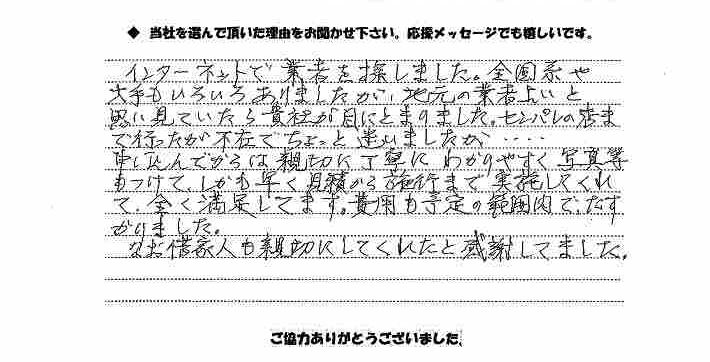 ◆ 当社を選んで頂いた理由をお聞かせ下さい。応援メッセージでも嬉しいです。
インターネットで業者を探しました。全国系や
大手もいろいろありましたが、地元の業者よいと
思い見ていたら貴社が目にとまりました。センパレの店ま
で行ったが不在でちょっと迷いましたが ････
申し込んでからは親切に丁寧にわかりやすく写真等
もつけて、しかも早く見積から施行まで実施してくれ
て、全く満足してます。費用も予定の範囲内でたす
かりました。
なお借家人も親切にしてくれたと感謝してました。
ご協力ありがとうございました。